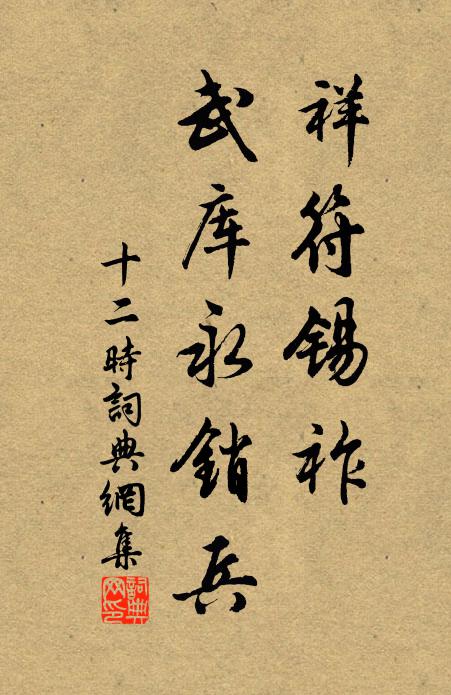 祥符锡祚
武库永銷兵
十二時詞典網集
詞典网印